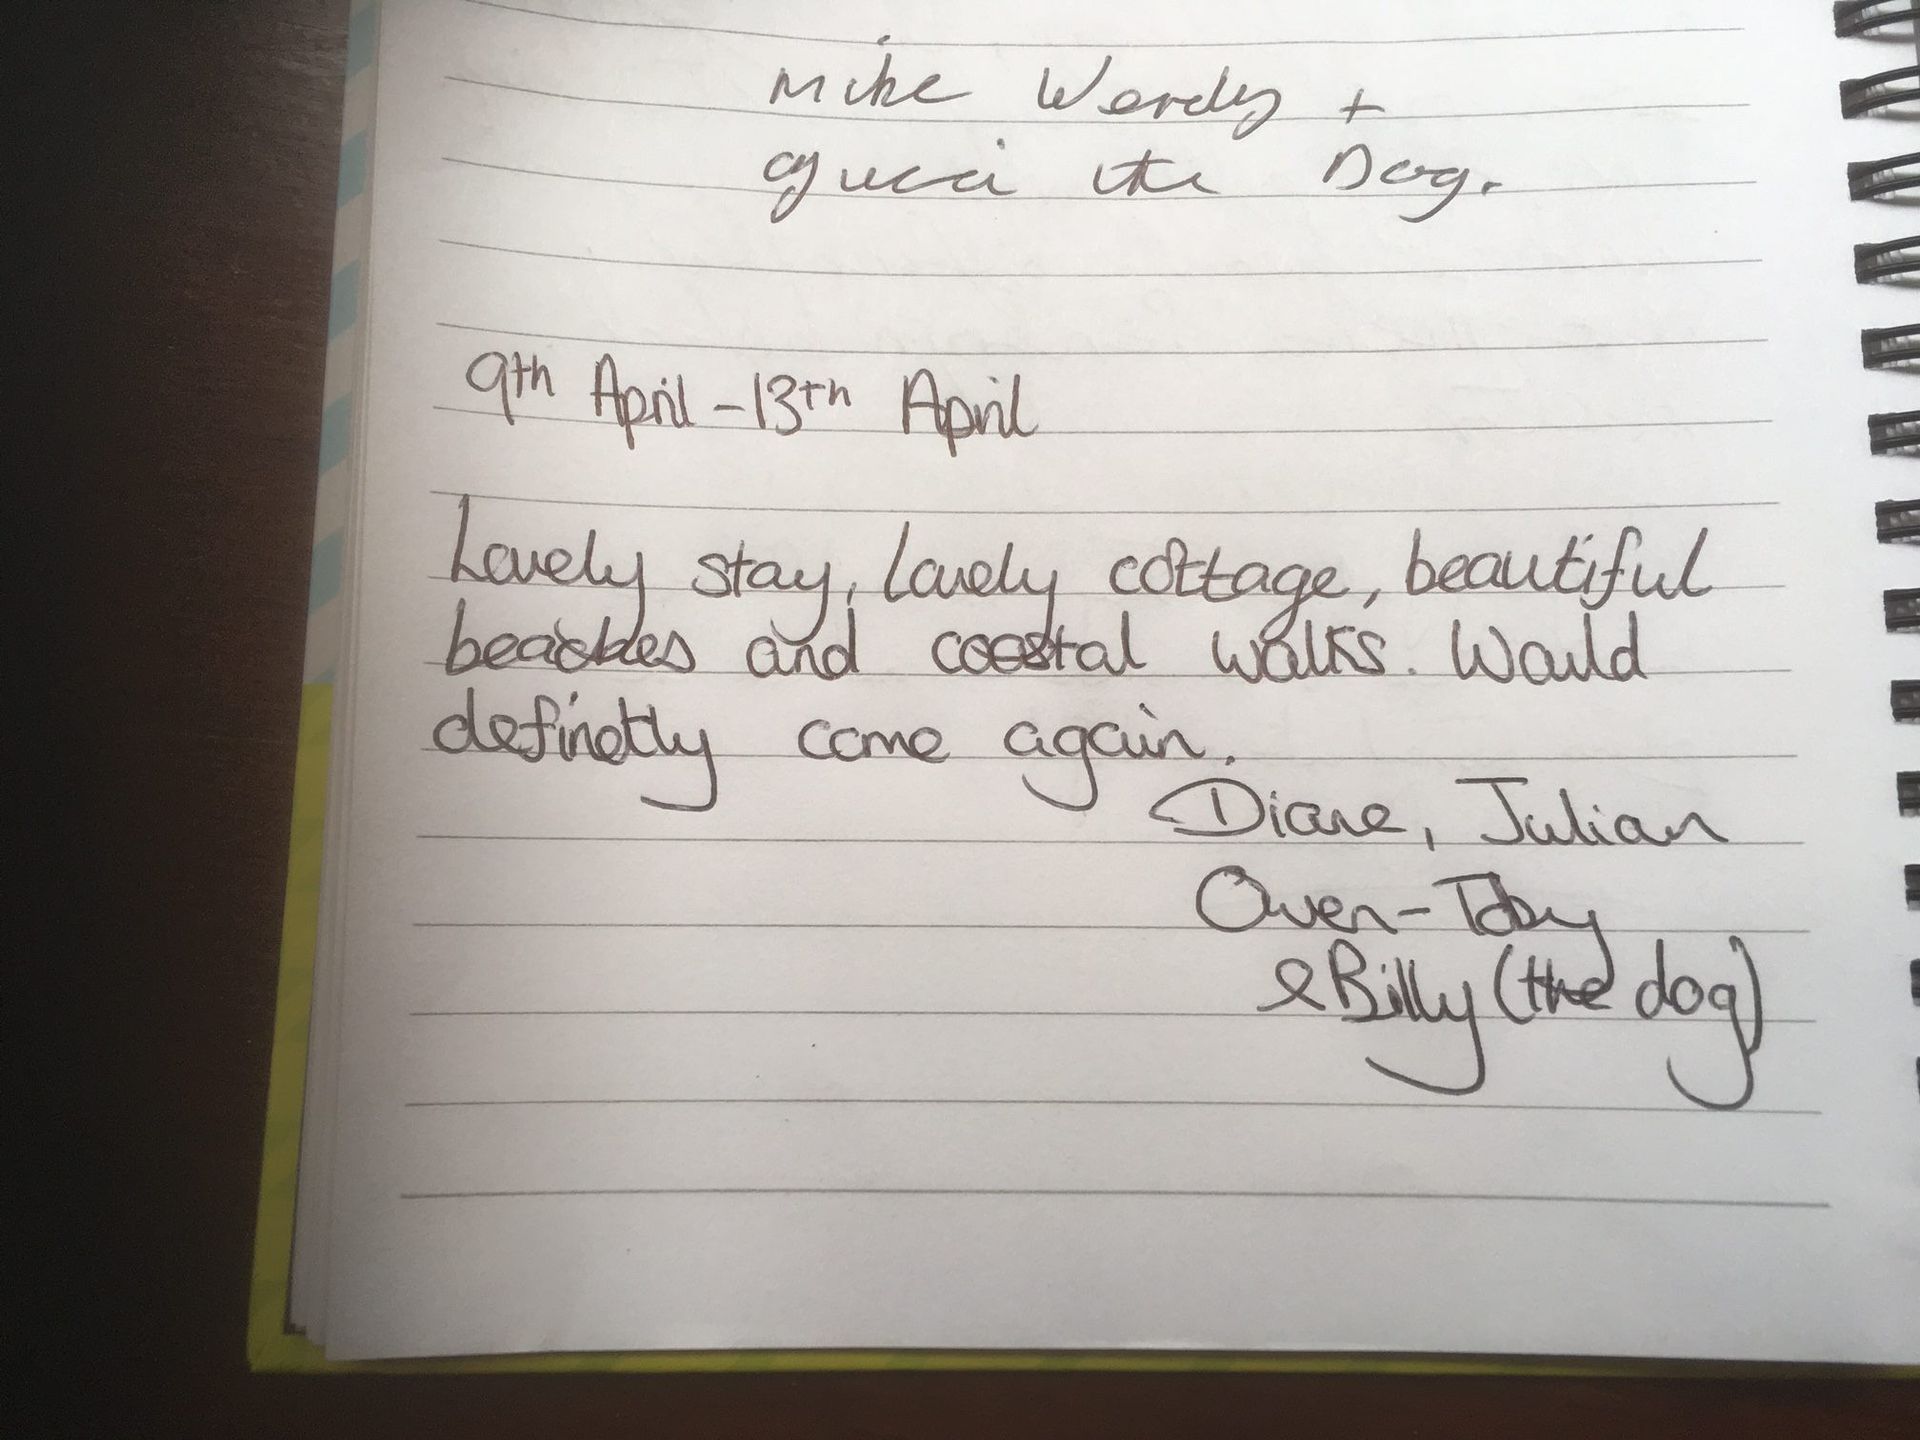 Mike Wendy +
Gucci the Dog.
9th April - 13th April
Lovely stay, lovely cottage, beautiful
beaches and coastal walks. Would
definetly come again.
Diane, Julian
Owen - Toby
& Billy (the dog)